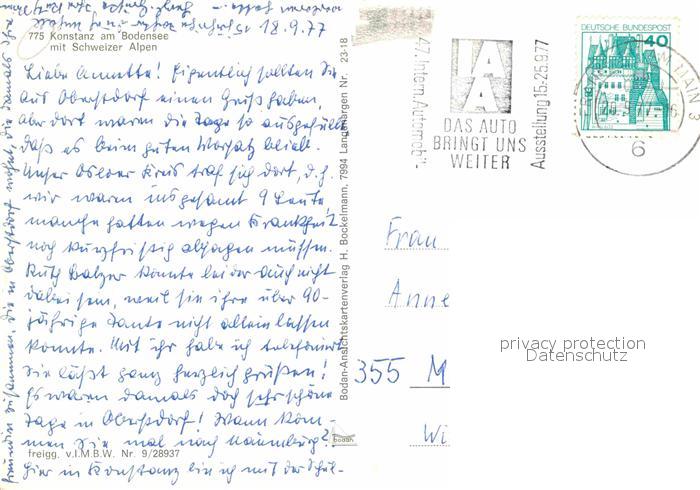 18.9.77
775 Konstanz am Bodensee
mit Schweizer Alpen
Liebe Annette! Eigentlich sollten Sie
aus Oberstdorf einen Gruß haben,
aber dort waren die Tage so ausgefüllt
daß es beim guten Vorsatz blieb.
Unser Osloer Kreis traf sich dort, d.h.
wir waren insgesamt 9 Leute,
manche hatten wegen Krankheit
noch kurzfristig absagen müssen.
Ruth Balzer konnte leider auch nicht
dabei sein, weil sie ihre über 90-
jährige Tante nicht allein lassen
konnte. Mit ihr habe ich telefoniert
Sie läßt ganz herzlich grüßen!
Es waren damals doch sehr schöne
Tage in Oberstdorf! Wann kom-
men Sie mal nach Naumburg?
freigg. v.I.M.B.W. Nr. 9/28937
Hier in Konstanz bin ich mit der Schul-
freundin zusammen, die in Oberstdorf wohnt, die damals
Bodan-Ansichtskartenverlag H. Bockelmann, 7994 Langenargen Nr. 23-18
bodan
47. Intern. Automobil-
IAA
DAS AUTO
BRINGT UNS
WEITER
Ausstellung 15.-25.9.77
DEUTSCHE BUNDESPOST
40
6
Frau
Anne
355 M
Wi
privacy protection
Datenschutz